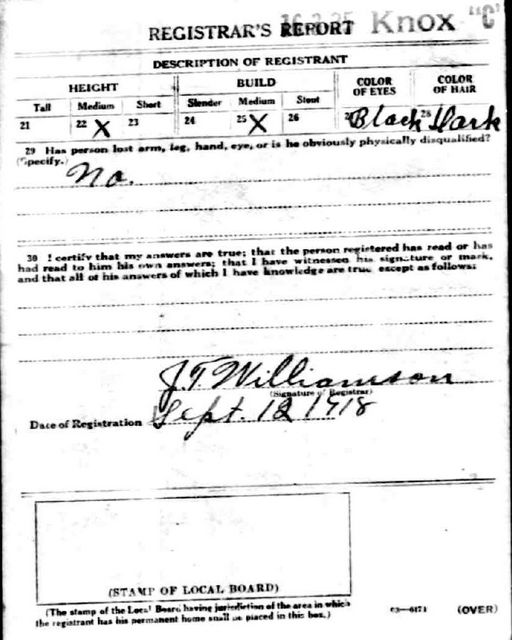 REGISTRAR'S REPORT Knox "C"
DESCRIPTION OF REGISTRANT
HEIGHT BUILD COLOR OF EYES COLOR OF HAIR
Tall Medium Short Slender Medium Stout
21 22 X 23 24 25 X 26 Black 28 Dark
29 Has person lost arm, leg, hand, eye, or is he obviously physically disqualified?
(Specify.) No.
30 I certify that my answers are true; that the person registered has read or has
had read to him his own answers; that I have witnessed his signature or mark,
and that all of his answers of which I have knowledge are true, except as follows:
J.T. Williamson
(Signature of Registrar)
Date of Registration Sept. 12 1918
(STAMP OF LOCAL BOARD)
(The stamp of the Local Board having jurisdiction of the area in which
the registrant has his permanent home shall be placed in this box.)
03—6171 (OVER)